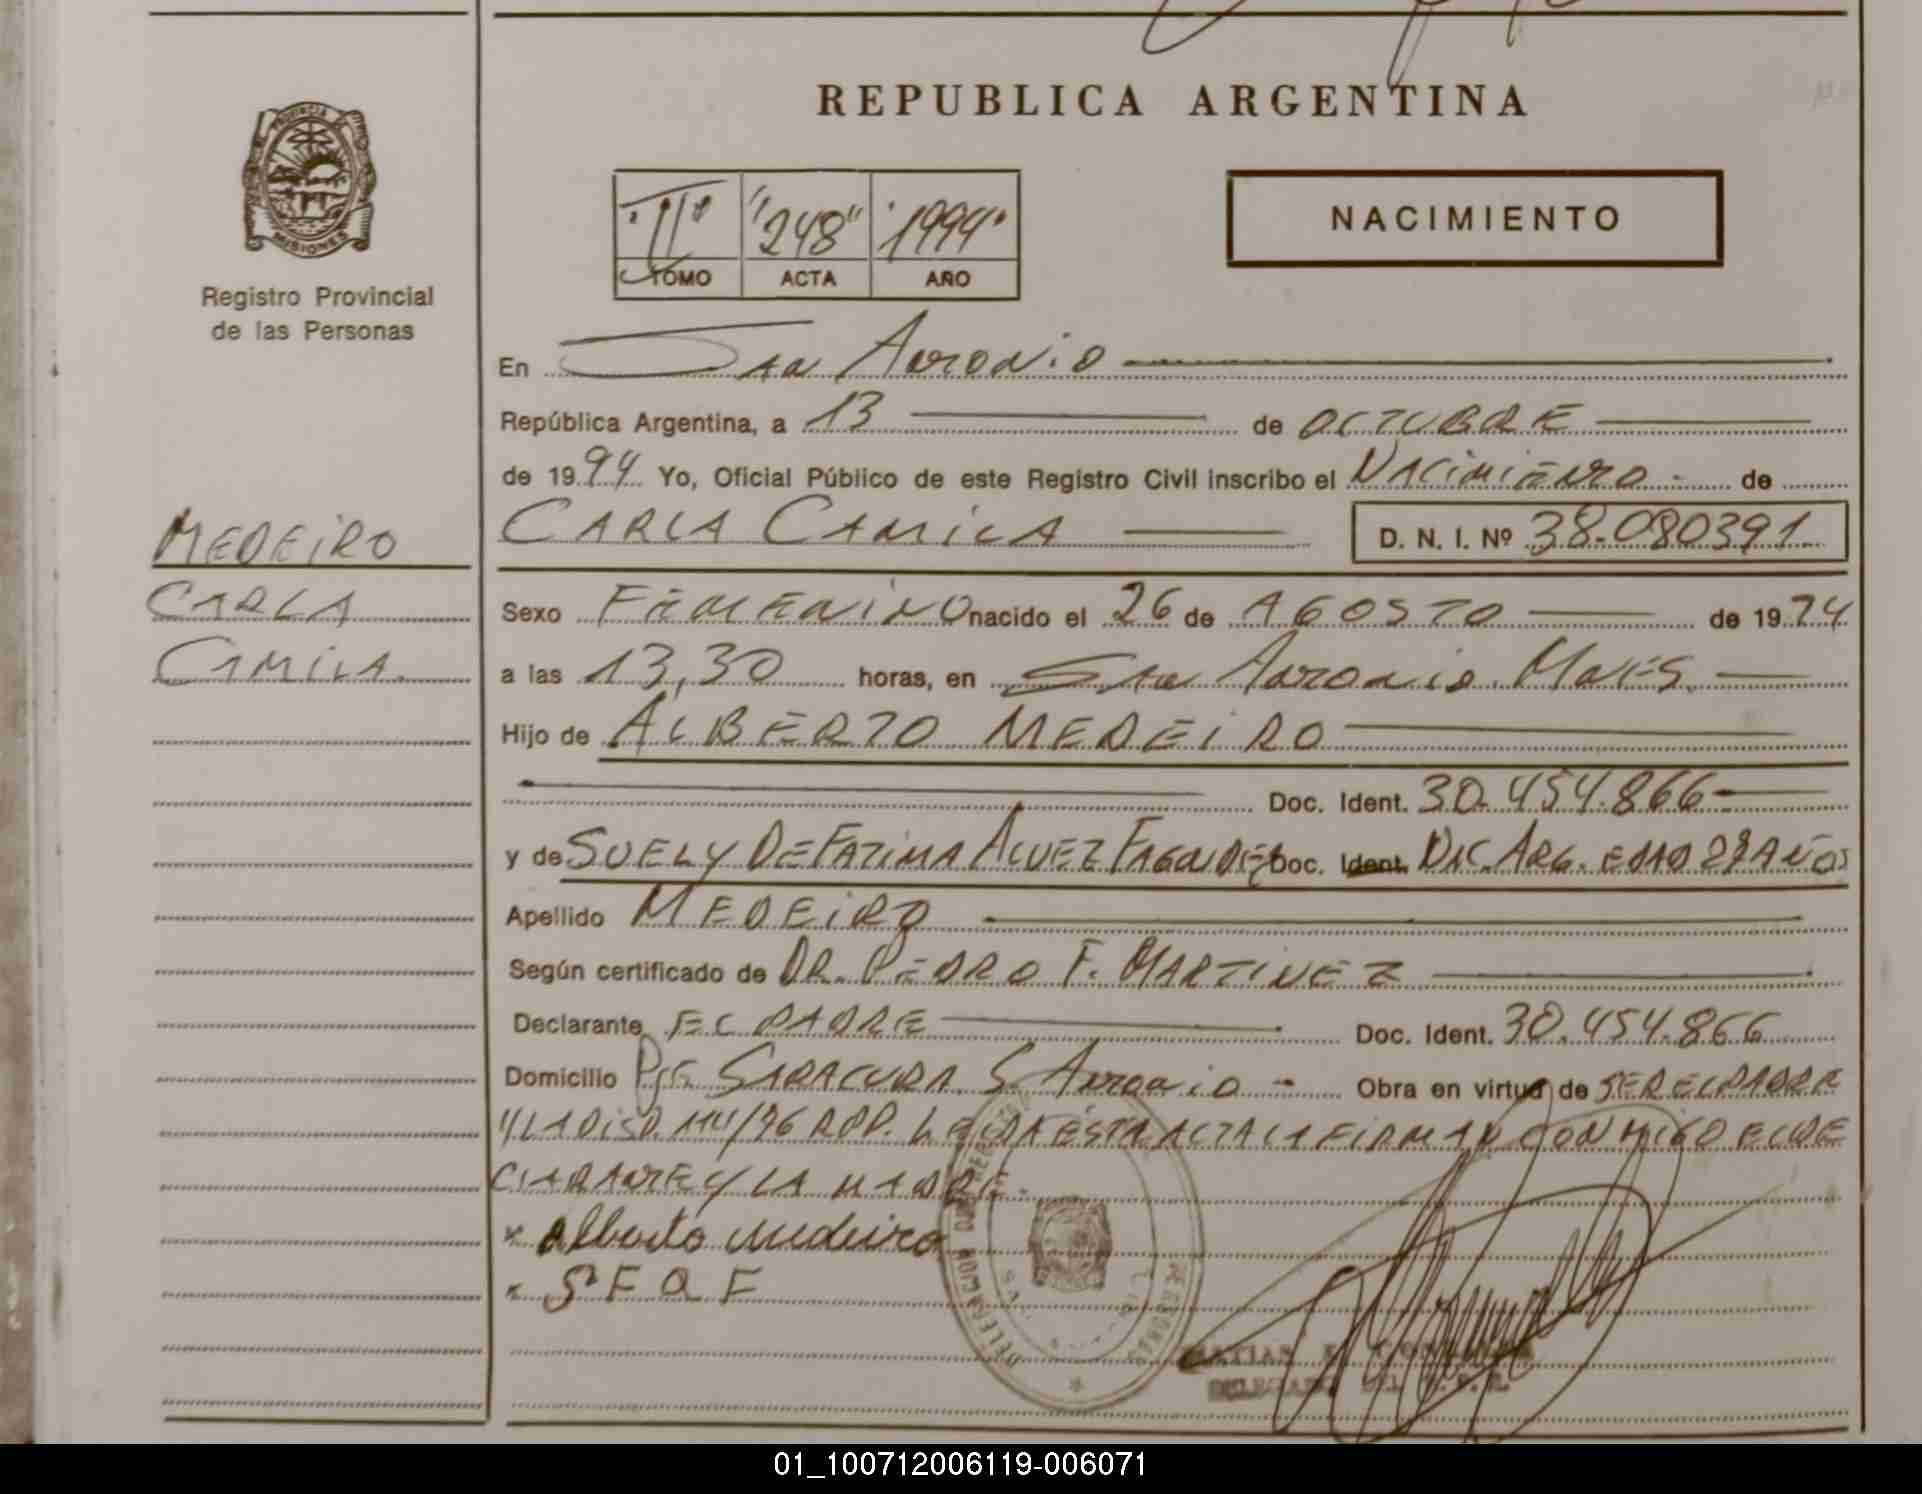 REPUBLICA ARGENTINA
PROVINCIA DE MISIONES
Registro Provincial
de las Personas
"II" "248" "1994"
TOMO ACTA AÑO
NACIMIENTO
En San Antonio
República Argentina, a 13 de OCTUBRE
de 1994 Yo, Oficial Público de este Registro Civil inscribo el NACIMIENTO de
MEDEIRO
CARLA CAMILA D. N. I. Nº 38.080391
CARLA
CAMILA
Sexo FEMENINO nacido el 26 de AGOSTO de 1994
a las 13,30 horas, en San Antonio Mnes.
Hijo de ALBERTO MEDEIRO
Doc. Ident. 30.454.866
y de SUELY DE FATIMA ALVEZ FAGUNDEZ Doc. Ident. NAC. ARG. EDAD AÑOS
Apellido MEDEIRO
Según certificado de DR. PEDRO F. MARTINEZ
Declarante EL PADRE Doc. Ident. 30.454.866
Domicilio Pje SARACURA S. Antonio Obra en virtud de SER EL PADRE
Y LA DISP. 114/96 RPP. LEIDA ESTA ACTA LA FIRMAN CONMIGO EL DE
CLARANTE Y LA MADRE.
x Alberto Medeiro
x S F A F
DELEGACION
PERSONAS
DELEGADO DEL R. P. P.
01_100712006119-006071